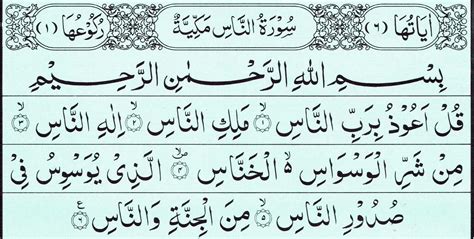 اٰيَاتُهَا (٦) سُوْرَةُ النَّاسِ مَكِّيَّةٌ رُكُوْعُهَا (١)
بِسْمِ اللّٰهِ الرَّحْمٰنِ الرَّحِيْمِ
قُلْ اَعُوْذُ بِرَبِّ النَّاسِ ۙ﴿١﴾ مَلِكِ النَّاسِ ۙ﴿٢﴾ اِلٰهِ النَّاسِ ۙ﴿٣﴾
مِنْ شَرِّ الْوَسْوَاسِ ۙ الْخَنَّاسِ ۪ۙ﴿٤﴾ الَّذِىْ يُوَسْوِسُ فِىْ
صُدُوْرِ النَّاسِ ۙ﴿٥﴾ مِنَ الْجِنَّةِ وَالنَّاسِ ﴿٦﴾ ع